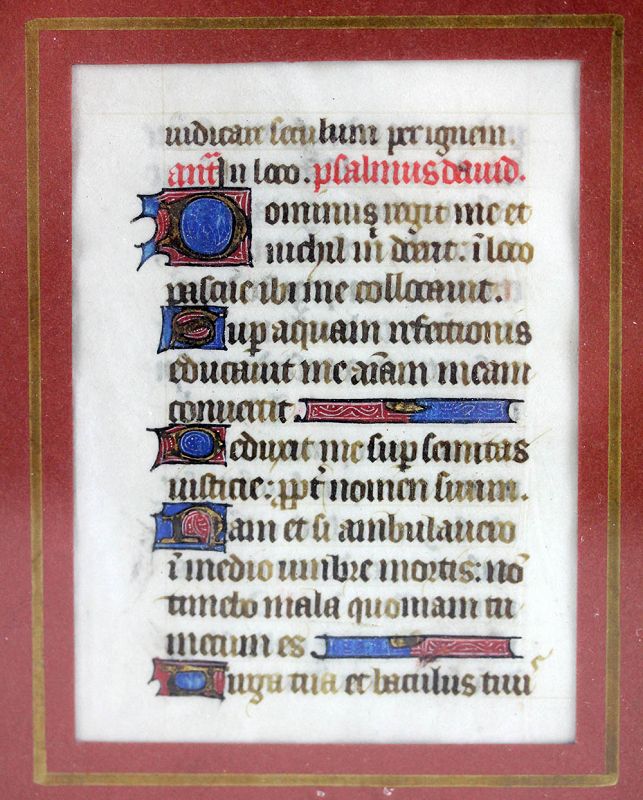 iudicare seculum per ignem.
ant̄ In loco. psalmus dauid.
Dominus regit me et
nichil m̄ deerit: ī loco
pascue ibi me collocauit.
Sup aquam refectionis
educauit me aīam meam
conuertit.
Deduxit me sup semitas
iusticie: ppt̄ nomen suum.
Nam et si ambulauero
ī medio umbre mortis: nō
timebo mala quoniam tu
mecum es
Uirga tua et baculus tuus